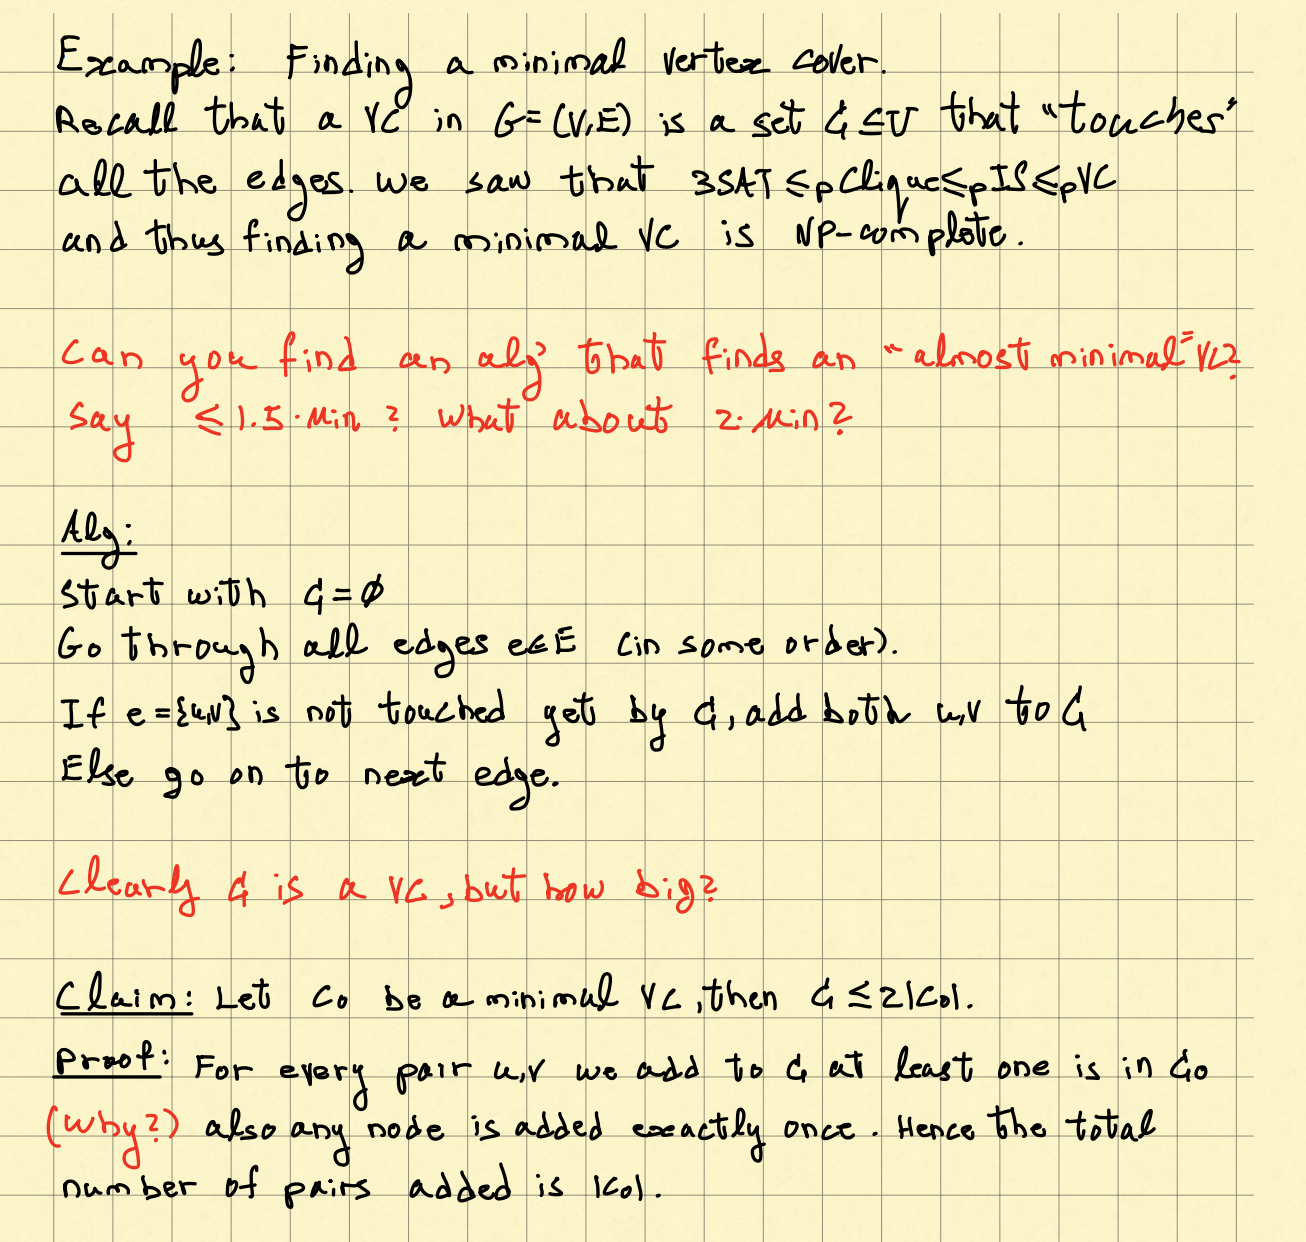 Example: Finding a minimal vertex cover.
Recall that a VC in G=(V,E) is a set C⊆V that "touches"
all the edges. We saw that 3SAT ≤p Clique ≤p IS ≤p VC
and thus finding a minimal VC is NP-complete.
Can you find an alg' that finds an "almost minimal" VC?
say ≤ 1.5·Min? What about 2·Min?
Alg:
Start with C=∅
Go through all edges e∈E (in some order).
If e={u,v} is not touched yet by C, add both u,v to C
Else go on to next edge.
Clearly C is a VC, but how big?
Claim: Let C₀ be a minimal VC, then C ≤ 2|C₀|.
Proof: For every pair u,v we add to C at least one is in C₀
(Why?) also any node is added exactly once. Hence the total
number of pairs added is |C₀|.